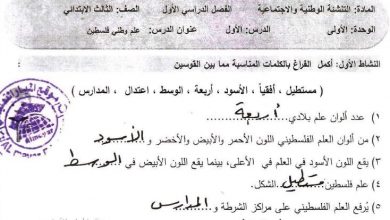 المادة: التنشئة الوطنية والاجتماعية الفصل الدراسي الأول الصف: الثالث الابتدائي
الوحدة: الأولى الدرس: الأول عنوان الدرس: علم وطني فلسطين
النشاط الأول: أكمل الفراغ بالكلمات المناسبة مما بين القوسين
( مستطيل ، أفقياً ، الأسود ، أربعة ، الوسط ، اعتدال ، المدارس )
١) عدد ألوان علم بلادي أربعة
٢) من ألوان العلم الفلسطيني اللون الأحمر والأبيض والأخضر و الأسود
٣) يقع اللون الأسود في العلم في الأعلى، بينما يقع اللون الأبيض في الوسط
٤) علم فلسطين مستطيل الشكل.
٥) يُرفع العلم الفلسطيني على مراكز الشرطة و المدارس